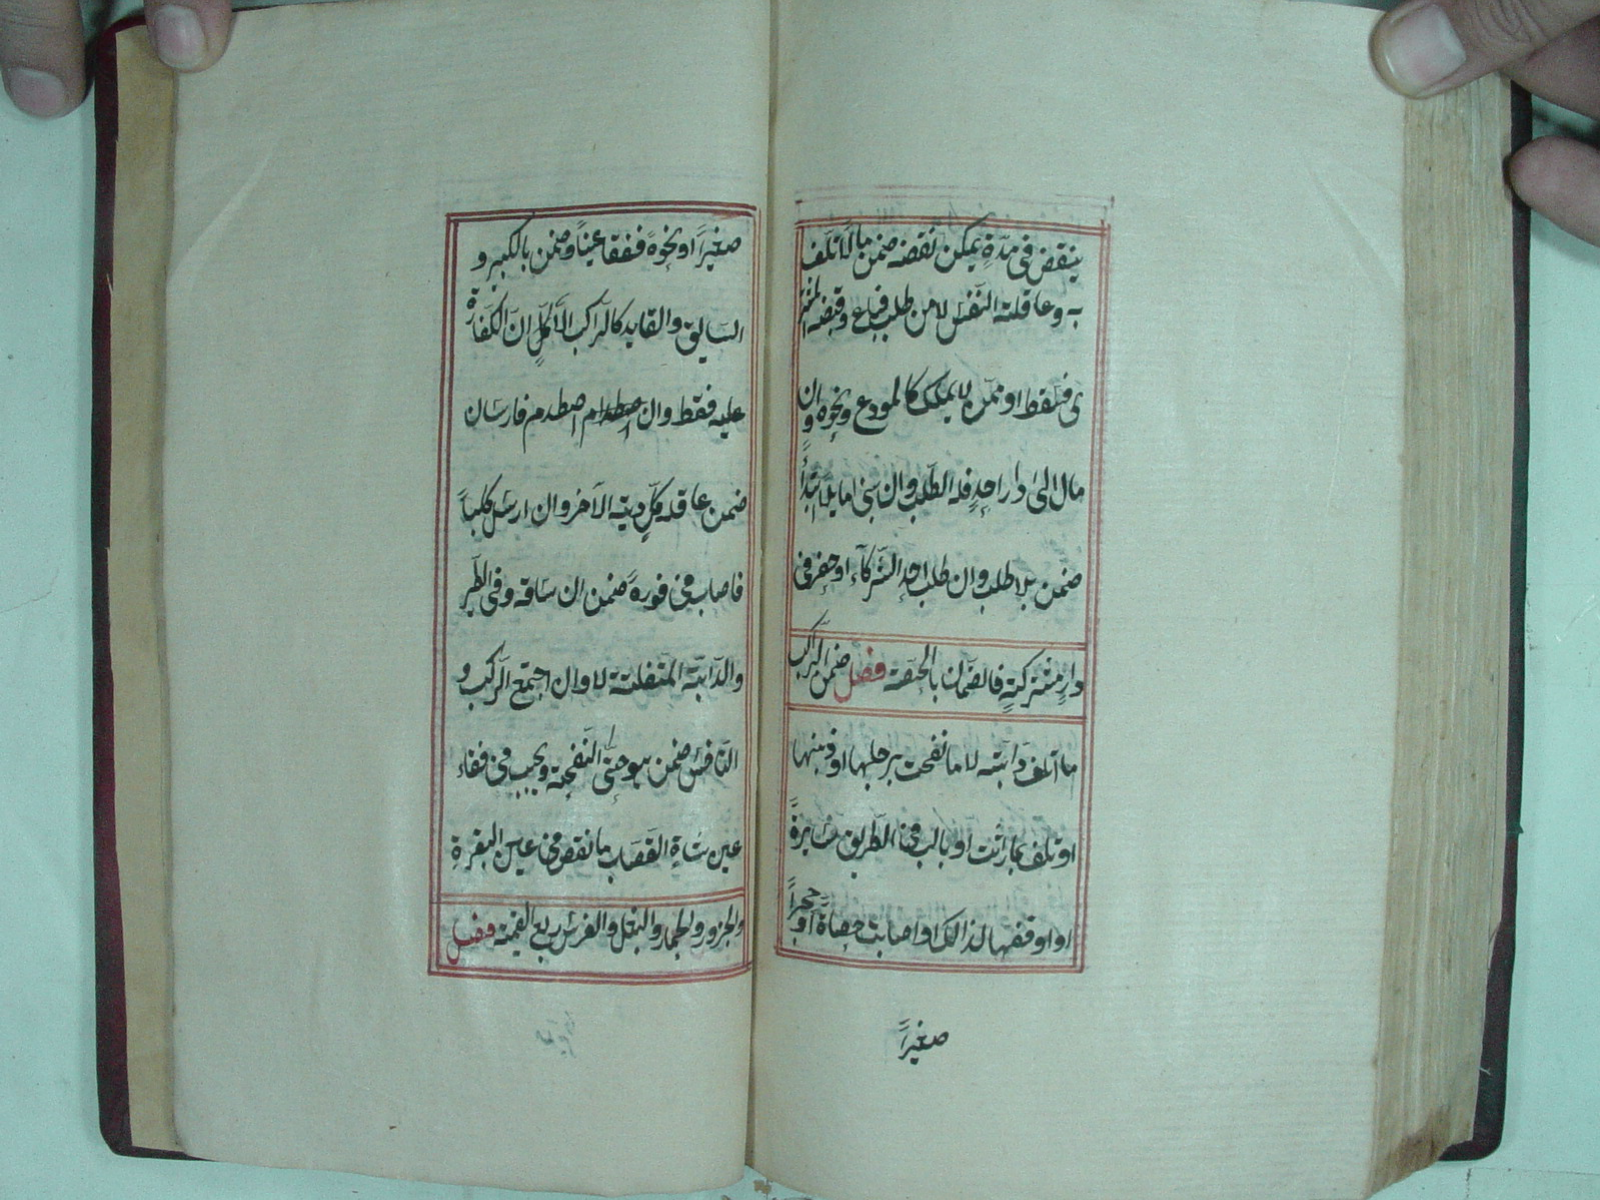 ينقض فى مدّةٍ يمكن نقضه ضمن مالًا تلف
به وعاقلته النّفس لا من طلب فباع وقبضه المشتر
ى فسقط او ممّن لا يملك كالمودع ونحوه وان
مال الى دار احدٍ فله الطّلب وان بنى مايلًا ابتدأً
ضمن بلا طلب وان طلب احد الشّركآء او حفر فى
دارٍ مشتركةٍ فالضّمان بالحصّة فصل ضمن الرّاكب
ما اتلف دابته لا ما نفحت برجلها او ذنبها
او تلف بما راثت او بالت فى الطّريق سايرةً
او اوقفها لذالك او اصابت حصاة او حجراً
صغيراً
صغيراً او نحوهً ففقا عيناً وضمن بالكبير و
السّايق والقايد كالرّاكب الّا كلّ ان الكفّارة
عليه فقط وان اصطدام اصطدم فارسان
ضمن عاقلة كلٍّ دية الآخر وان ارسل كلباً
فاصاب فى فورهً ضمن ان ساقه وفى الطّير
والدّابّة المنفلتة لا وان اجتمع الرّاكب و
النّاخس ضمن هو حتّى النّفحة ويجب فى فقاء
عين شاة القصّاب ما نقص فى عين البقرةِ
والجزور والحمار والبغل والفرس ربع القيمة فصل